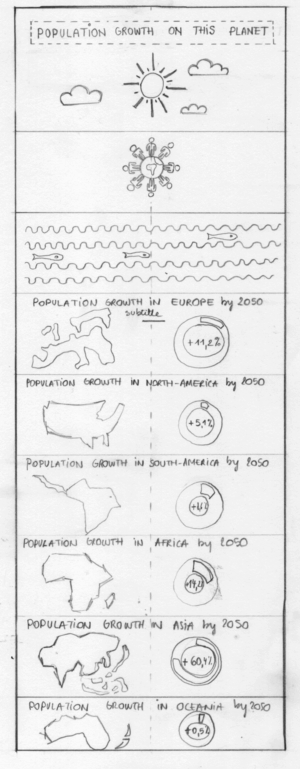 POPULATION GROWTH ON THIS PLANET
POPULATION GROWTH IN EUROPE by 2050
subtitle
+11,2%
POPULATION GROWTH IN NORTH-AMERICA by 2050
+5,1%
POPULATION GROWTH IN SOUTH-AMERICA by 2050
POPULATION GROWTH IN AFRICA by 2050
POPULATION GROWTH IN ASIA by 2050
+60,4%
POPULATION GROWTH IN OCEANIA by 2050
+0,5%